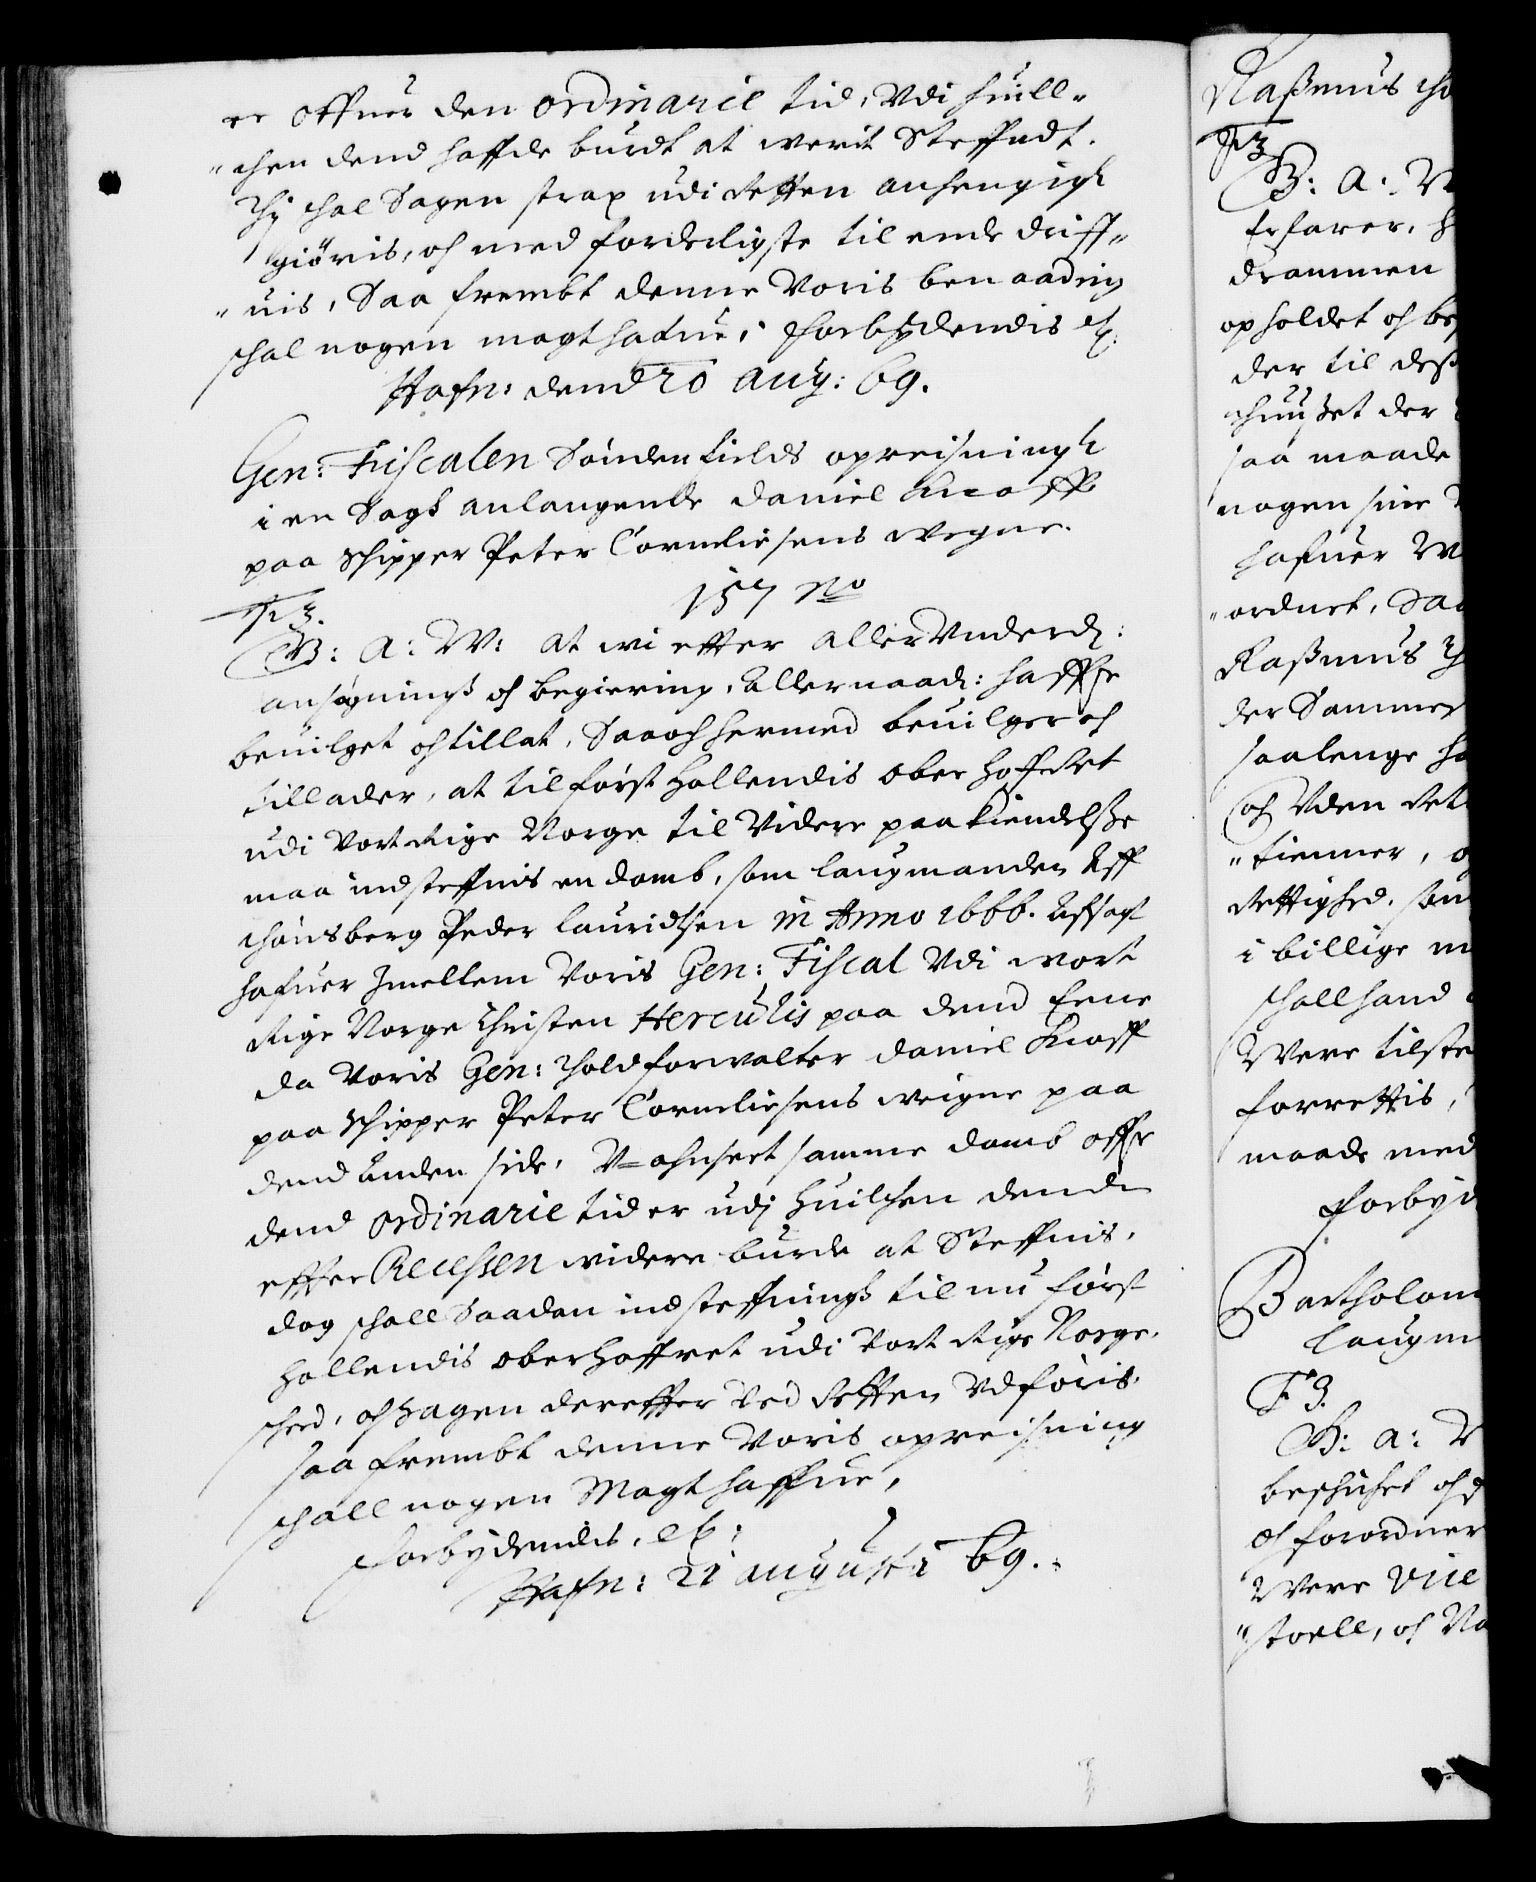 er offuer den ordinarie tid, Udi huil¬
"chen dend haffde burdt at werit Steffndt.
Thj schal Sagen strax udi Retten anhengigh
giöris, och med forderligste til ende driff¬
"uis, Saa frembt denne Voris benaading
schal nogen magt hafue, Forbydendis etc:
Hafn: dend 20 aug: 69.
Gen: Fiscalen Söndenfields opreisningh
i en Sagh anlangende Daniel Knoff
paa Schipper Peter Corneliesens wegne.
157 No
F 3.
G: A: W: at wi effter aller Underd:
ansögningh och begiering, Allernaad: haffue
beuilget och tillat, Saa och hermed beuilger och
tillader, at til först hollendis ober Hoffret
udi vort Rige Norge til Videre paakiendelsse
maa indsteffnis en domb, som laugmanden Aff
Thönsberg Peder lauridtsen in Anno 1666. Affsagt
hafuer Imellem Voris Gen: Fiscal Udi wort
Rige Norge Christen Herculis paa dend Eene
da Voris Gen: Toldforwalter Daniel Knoff
paa Schipper Peter Corneliesens weigne paa
dend Anden side, U=ahnseet samme domb offr
dend ordinarie tid er udj huilchen dend
effter Recessen widere burde at Steffnis,
dog schall Saadan indsteffningh til nu först
hollendis oberhoffret udi vort Rige Norge,
scheed, och Sagen dereffter ved Retten Udföris.
saa frembt denne Voris opreisning
schall nogen Magt haffue,
Forbydendis, etc:
Hafn: 21 augusti 69.
Rasmus
F 3
G: A: W
Erfarer, h
Drammen
opholdet och be
der til des
huuset der
saa maade
nogen sine
hafuer W
"ordnet, Saa
Rasmus Th
der Sammes
saalenge ha
och Uden Ret
"tienner, o
Rettighed, som
i billige m
schall hand
Were tilste
forrettis,
maade med
Forbyd
Bartholom
laugm
F 3.
G: A: W
beschichet och
och forordner
Were Vice
"stoell, och No